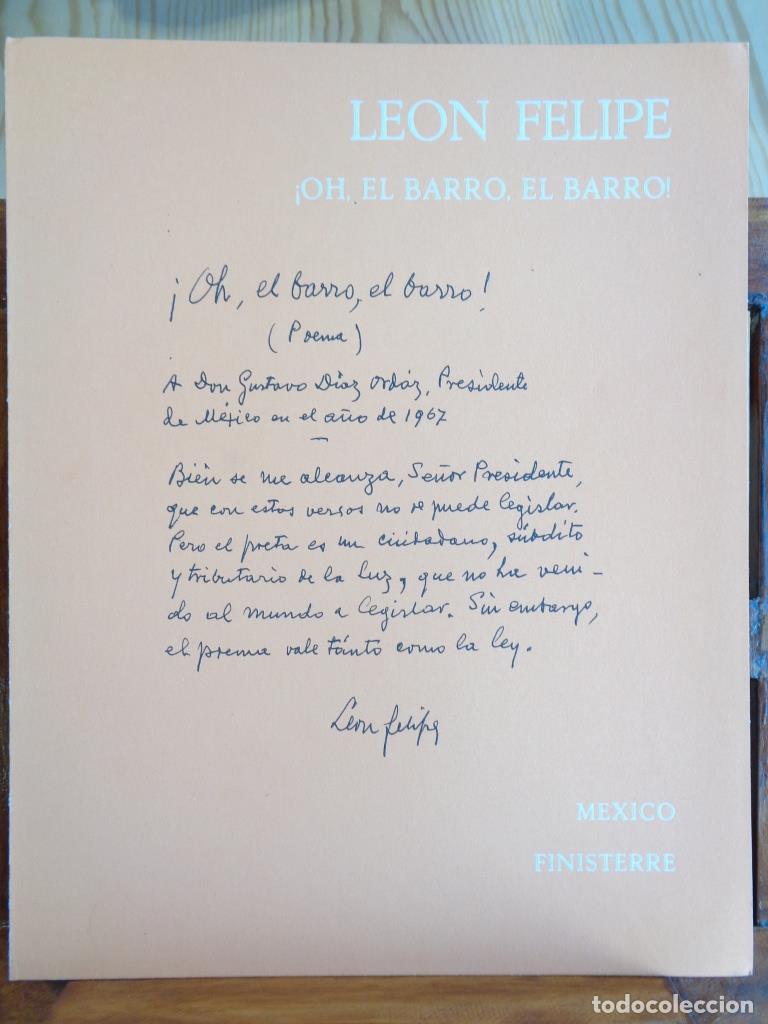 LEON FELIPE
¡OH, EL BARRO, EL BARRO!
¡Oh, el barro, el barro!
(Poema)
A Don Gustavo Díaz Ordáz, Presidente
de México en el año de 1967
—
Bién se me alcanza, Señor Presidente,
que con estos versos no se puede legislar.
Pero el poeta es un ciudadano, súbdito
y tributario de la Luz, que no ha veni-
do al mundo a legislar. Sin embargo,
el poema vale tánto como la ley.
León Felipe
MEXICO
FINISTERRE
todocoleccion